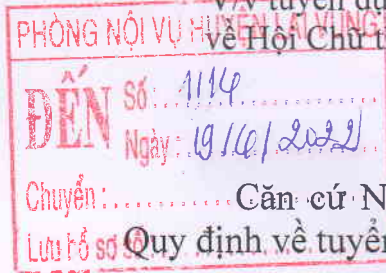 V/v tuyển dụ
PHÒNG NỘI VỤ HUYỆN LAI VUNG
về Hội Chữ t
ĐẾN Số: 1114
Ngày: 19/6/2022
Chuyển:
Căn cứ N
Lưu hồ sơ
Quy định về tuyển